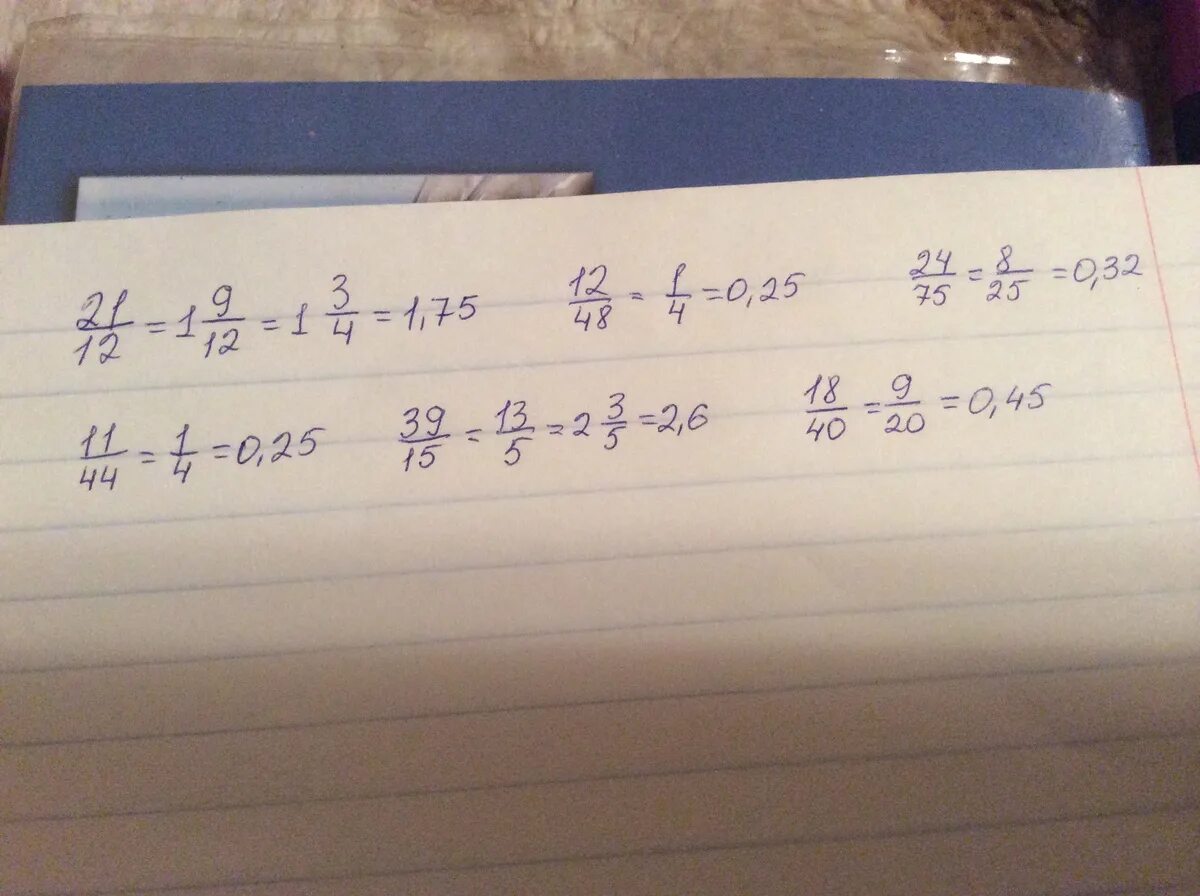 21/12 = 1 9/12 = 1 3/4 = 1,75 12/48 = 1/4 = 0,25 24/75 = 8/25 = 0,32
11/44 = 1/4 = 0,25 39/15 = 13/5 = 2 3/5 = 2,6 18/40 = 9/20 = 0,45